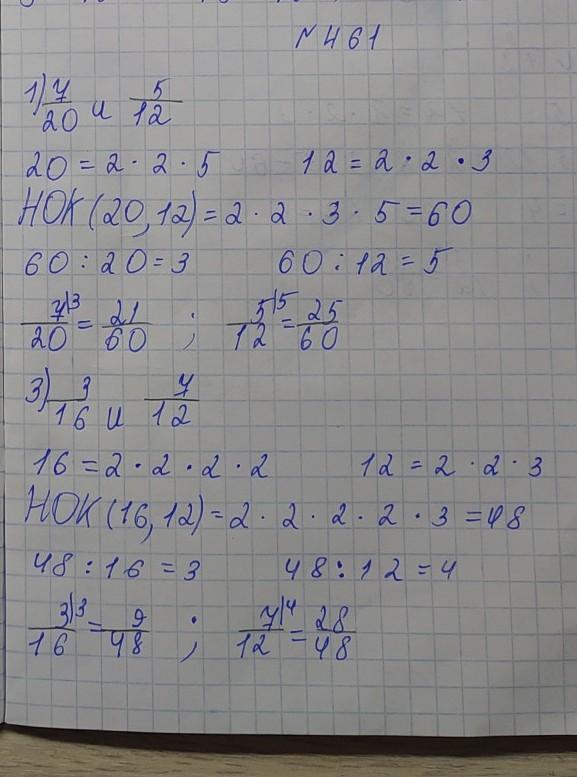 N 461
1) 7/20 и 5/12
20 = 2 · 2 · 5    12 = 2 · 2 · 3
НОК (20, 12) = 2 · 2 · 3 · 5 = 60
60 : 20 = 3    60 : 12 = 5
7|3/20 = 21/60 ; 5|5/12 = 25/60
3) 3/16 и 7/12
16 = 2 · 2 · 2 · 2    12 = 2 · 2 · 3
НОК (16, 12) = 2 · 2 · 2 · 2 · 3 = 48
48 : 16 = 3    48 : 12 = 4
3|3/16 = 9/48 ; 7|4/12 = 28/48